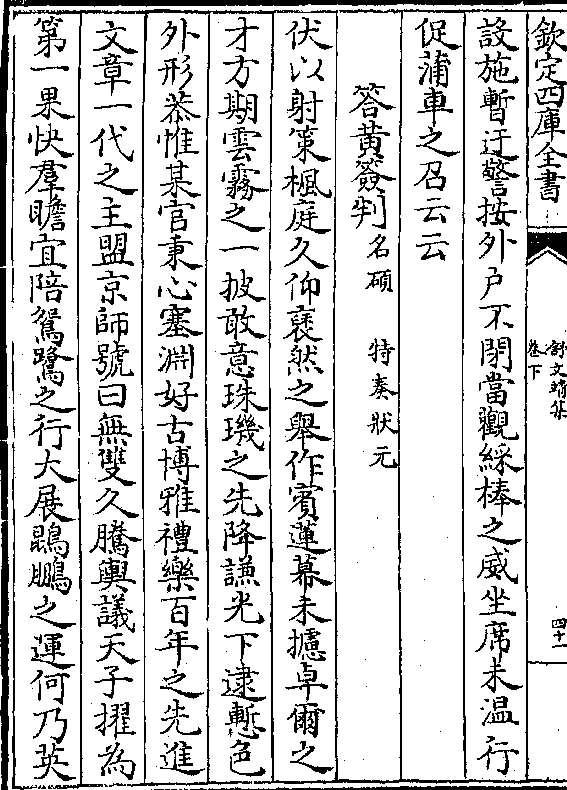 欽定四庫全書
舒文靖集
卷下
四十一
設施暫迂警按外戶不閉當觀綵棒之威坐席未温行
促蒲車之召云云
答黃簽判名碩　特奏狀元
伏以射策楓庭久仰襃然之舉作賓蓮幕未攄卓爾之
才方期雲霧之一披敢意珠璣之先降謙光下逮慙色
外形恭惟某官秉心塞淵好古博雅禮樂百年之先進
文章一代之主盟京師號曰無雙久騰輿議天子擢為
第一果快羣瞻宜陪鴛鷺之行大展鵾鵬之運何乃英